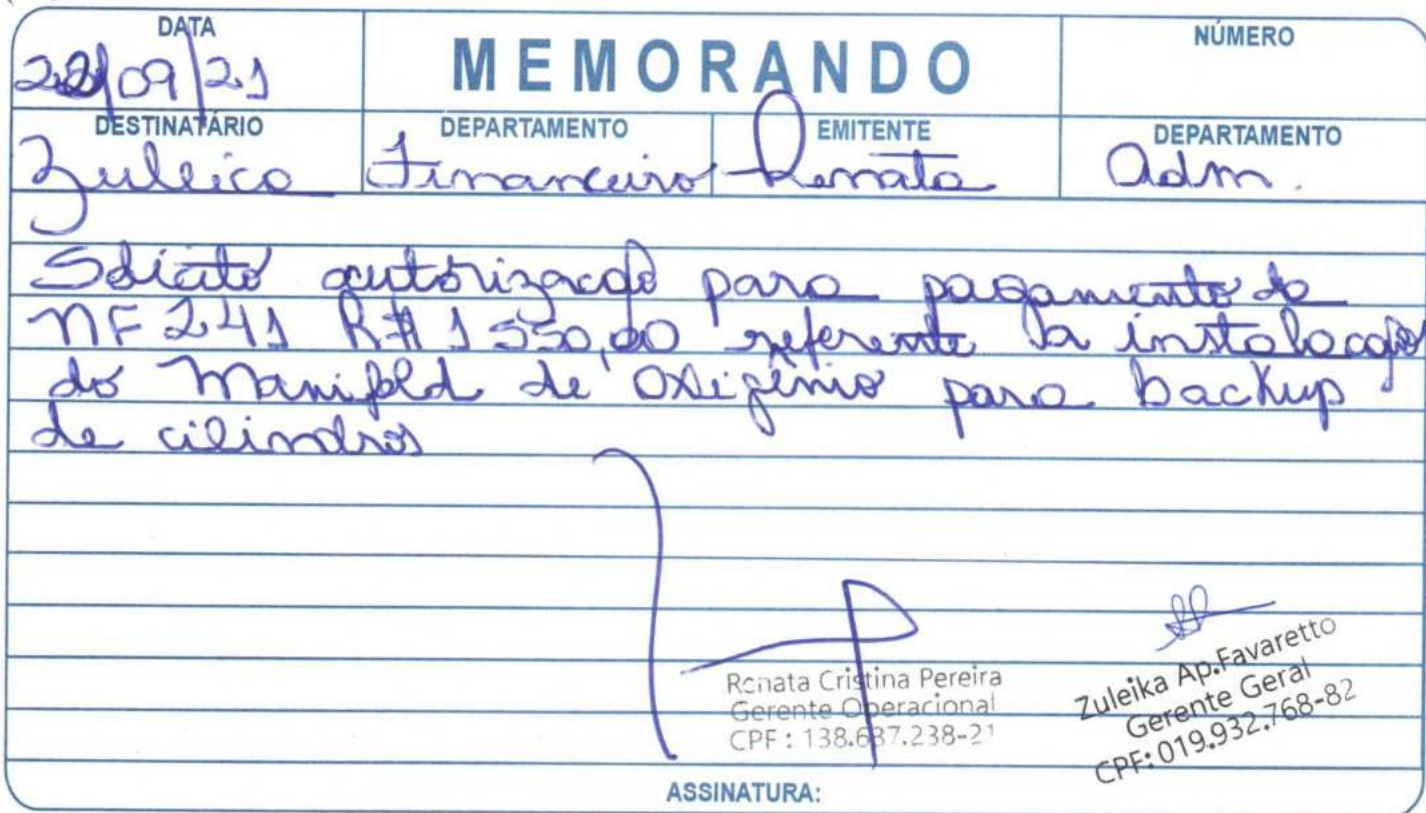 DATA
MEMORANDO
NÚMERO
22/09/21
DESTINATÁRIO
DEPARTAMENTO
EMITENTE
DEPARTAMENTO
Zuleica
Financeiro
Renata
Adm.
Solicito autorização para pagamento da
NF 241 R$ 1550,00 referente la instalação
do Manifold de Oxigênio para backup
de cilindros
Renata Cristina Pereira
Gerente Operacional
CPF : 138.637.238-21
Zuleika Ap.Favaretto
Gerente Geral
CPF: 019.932.768-82
ASSINATURA: